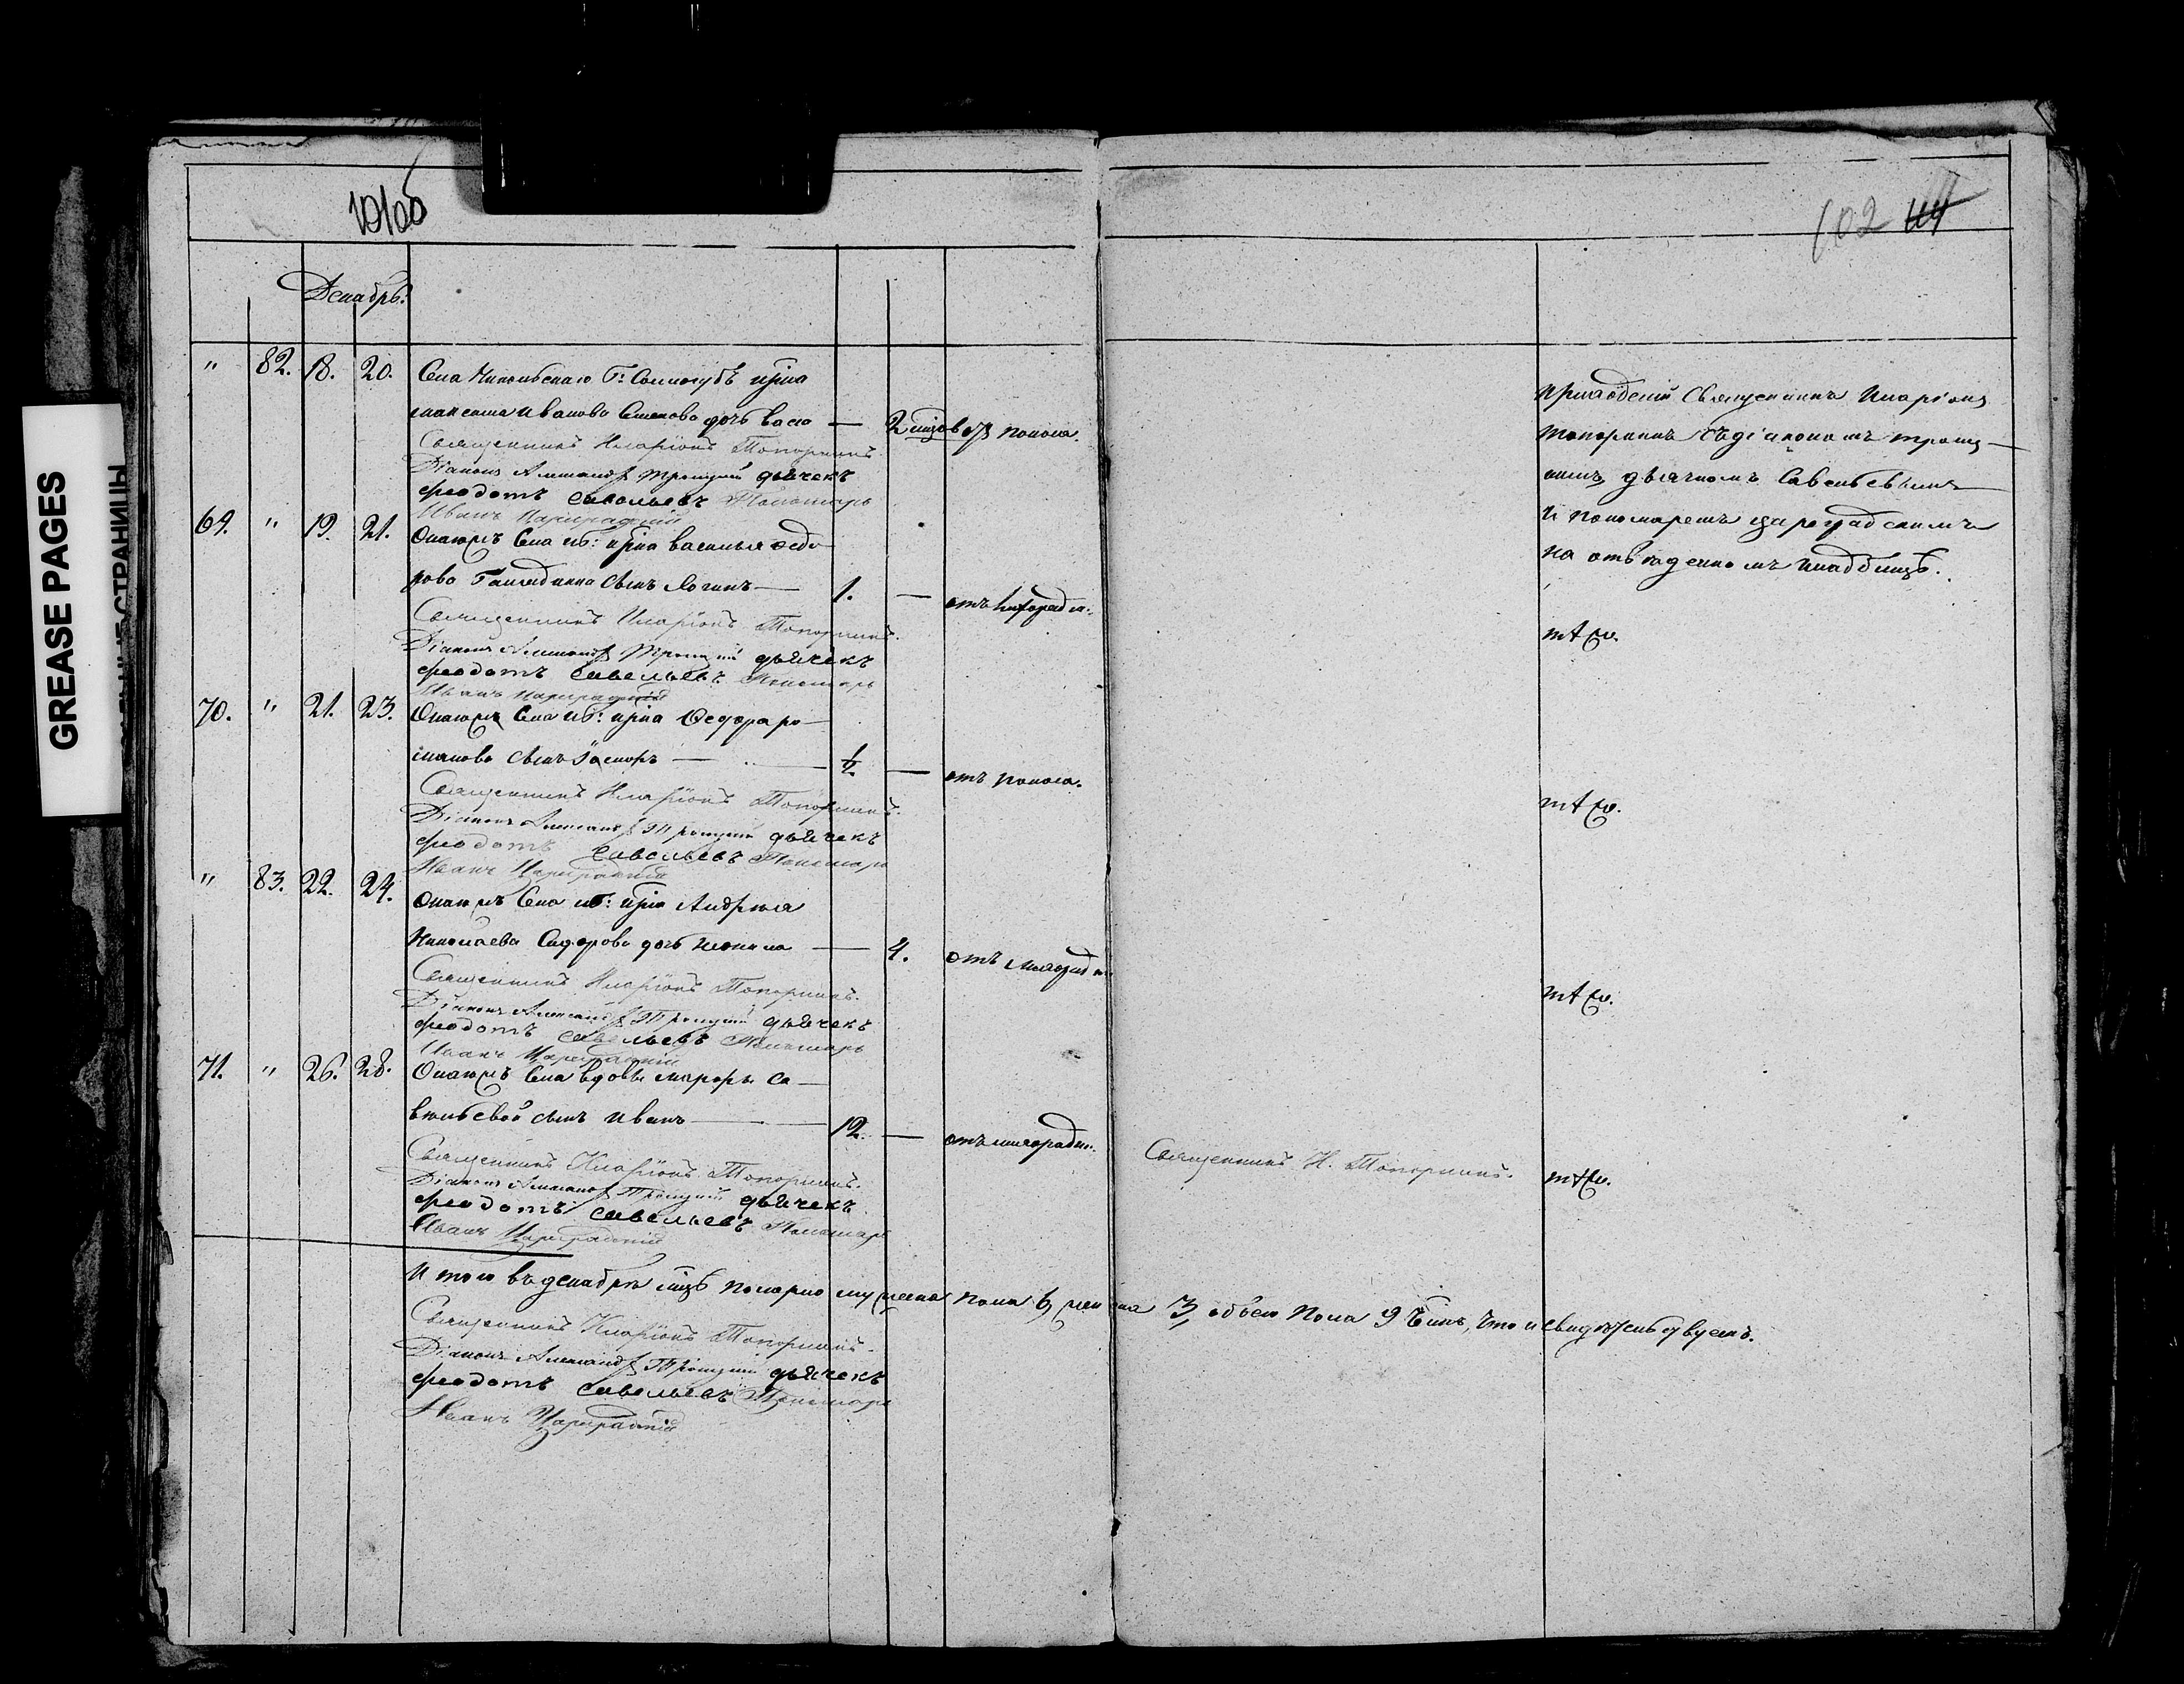 GREASE PAGES
101об
102
Декабрь.
" 82. 18. 20. Села Никольскаго Г: Сологубъ крна
максима Иванова Семенова дочь Васса — 2 мцов отъ поноса.
Священникъ Иларіонъ Топорнинъ
Діаконъ Александръ Троицкій дьячекъ
феодотъ Савельевъ Пономарь
Иванъ Цареградскій
приходской Священникъ Иларіонъ
Топорнинъ съ діакономъ Троиц—
кимъ, дьячкомъ Савельевымъ
и пономаремъ цареградскимъ
на отведенномъ кладбищѣ.
69. " 19. 21. Онагожъ Села иг: крна василья Федо—
рова сынъ Логинъ — 1. —
Священникъ Иларіонъ Топорнинъ.
Діаконъ Александръ Троицкій дьячекъ
феодотъ Савельевъ Пономарь
Иванъ Цареградскій
70. " 21. 23. Онагожъ Села иг: крна Федора Ро—
манова сынъ — ½. — отъ поноса.
Священникъ Иларіонъ Топорнинъ.
Діаконъ Александръ Троицкій дьячекъ
феодотъ Савельевъ Пономарь
Иванъ Цареградскій
" 83. 22. 24. Онагожъ Села иг: крна Андрея
Николаева Сидорова дочь — 4. отъ
Священникъ Иларіонъ Топорнинъ.
Діаконъ Александръ Троицкій дьячекъ
феодотъ Савельевъ Пономарь
Иванъ Цареградскій
71. " 26. 28. Онагожъ Села вдовы Са—
вельевой сынъ Иванъ — 12. —
Священникъ Иларіонъ Топорнинъ.
Діаконъ Александръ Троицкій дьячекъ
феодотъ Савельевъ Пономарь
Иванъ Цареградскій
Священникъ И. Топорнинъ.
Итого въ декабрѣ мцѣ померло мужеска пола 6, женска 3, обоего пола 9 ть чтои свидѣтельствуемъ.
Священникъ Иларіонъ Топорнинъ.
Діаконъ Александръ Троицкій дьячекъ
феодотъ Савельевъ Пономарь
Иванъ Цареградскій